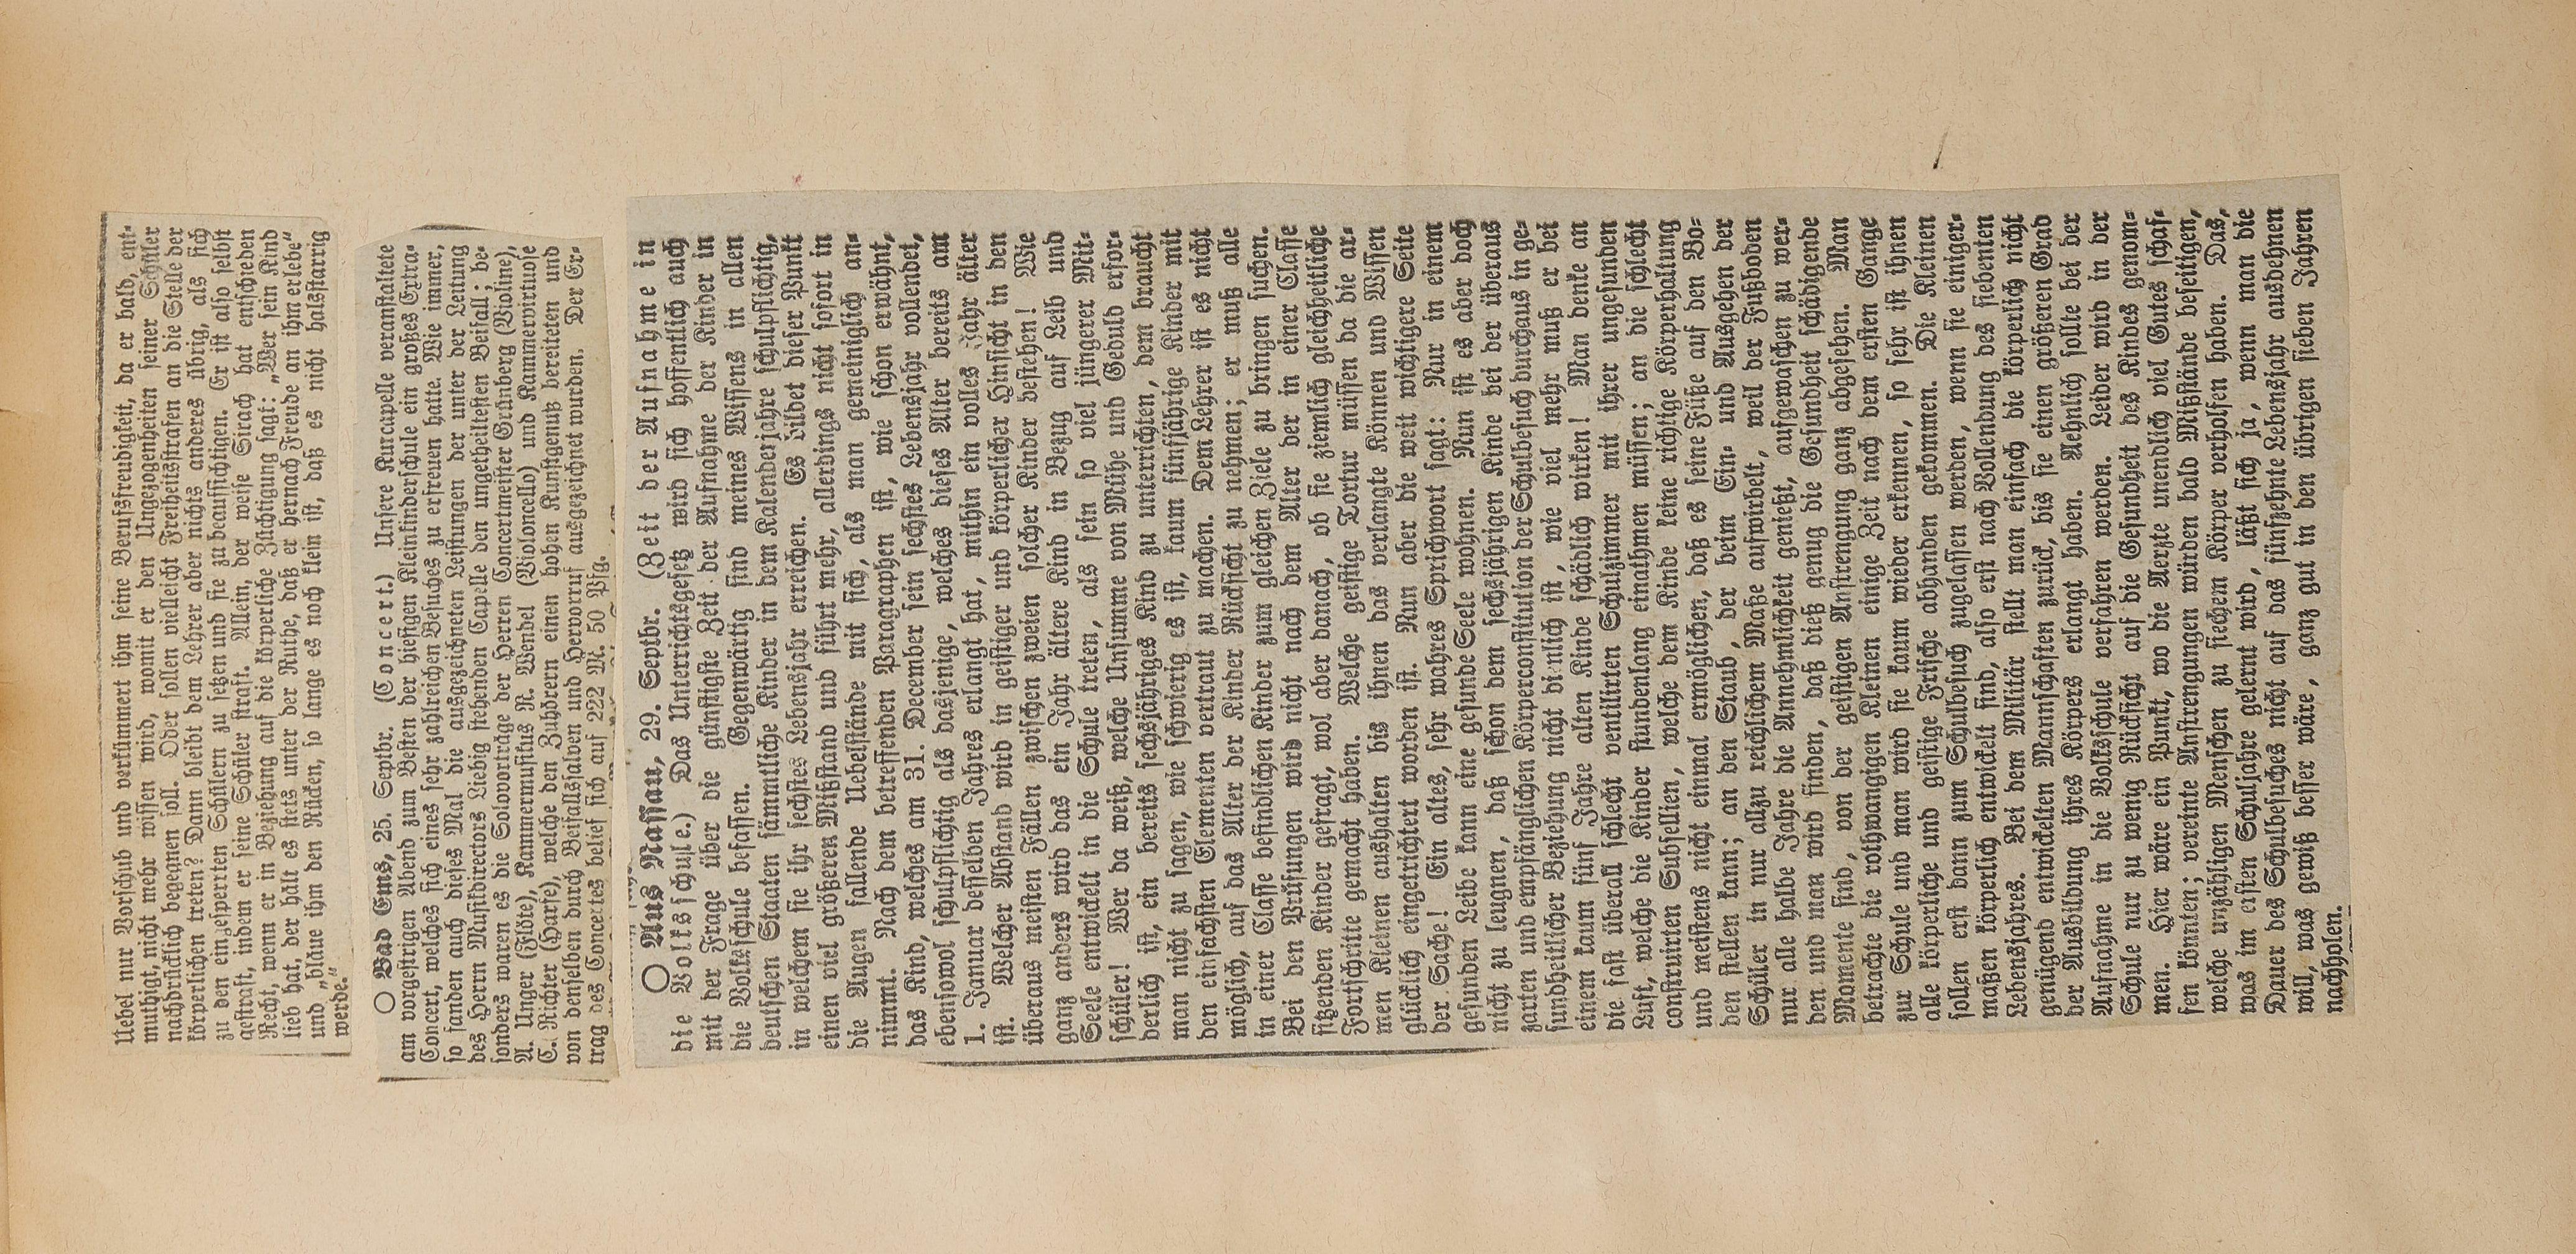 Uebel nur Vorschub und verkümmert ihm seine Berufsfreudigkeit, da er bald, ent-
muthigt, nicht mehr wissen wird, womit er den Ungezogenheiten seiner Schüler
nachdrücklich begegnen soll. Oder sollen vielleicht Freiheitsstrafen an die Stelle der
körperlichen treten? Dann bleibt dem Lehrer aber nichts anderes übrig, als sich
zu den eingesperrten Schülern zu setzen und sie zu beaufsichtigen. Er ist also selbst
gestraft, indem er seine Schüler straft. Allein, der weise Sirach hat entschieden
Recht, wenn er in Beziehung auf die körperliche Züchtigung sagt: „Wer sein Kind
lieb hat, der hält es stets unter der Ruthe, daß er hernach Freude an ihm erlebe“
und „bläue ihm den Rücken, so lange es noch klein ist, daß es nicht halsstarrig
werde.“
○ Bad Ems, 25. Septbr. (Concert.) Unsere Kurcapelle veranstaltete
am vorgestrigen Abend zum Besten der hiesigen Kleinkinderschule ein großes Extra-
Concert, welches sich eines sehr zahlreichen Besuches zu erfreuen hatte. Wie immer,
so fanden auch dieses Mal die ausgezeichneten Leistungen der unter der Leitung
des Herrn Musikdirectors Liebig stehenden Capelle den ungetheiltesten Beifall; be-
sonders waren es die Solovorträge der Herren Concertmeister Grünberg (Violine),
A. Unger (Flöte), Kammermusikus R. Wendel (Violoncello) und Kammervirtuose
C. Richter (Harfe), welche den Zuhörern einen hohen Kunstgenuß bereiteten und
von denselben durch Beifallssalven und Hervorruf ausgezeichnet wurden. Der Er-
trag des Concertes belief sich auf 222 M. 50 Pfg.
○ Aus Nassau, 29. Septbr. (Zeit der Aufnahme in
die Volksschule.) Das Unterrichtsgesetz wird sich hoffentlich auch
mit der Frage über die günstigste Zeit der Aufnahme der Kinder in
die Volksschule befassen. Gegenwärtig sind meines Wissens in allen
deutschen Staaten sämmtliche Kinder in dem Kalenderjahre schulpflichtig,
in welchem sie ihr sechstes Lebensjahr erreichen. Es bildet dieser Punkt
einen viel größeren Mißstand und führt mehr, allerdings nicht sofort in
die Augen fallende Uebelstände mit sich, als man gemeiniglich an-
nimmt. Nach dem betreffenden Paragraphen ist, wie schon erwähnt,
das Kind, welches am 31. December sein sechstes Lebensjahr vollendet,
ebensowol schulpflichtig als dasjenige, welches dieses Alter bereits am
1. Januar desselben Jahres erlangt hat, mithin ein volles Jahr älter
ist. Welcher Abstand wird in geistiger und körperlicher Hinsicht in den
überaus meisten Fällen zwischen zweien solcher Kinder bestehen! Wie
ganz anders wird das ein Jahr ältere Kind in Bezug auf Leib und
Seele entwickelt in die Schule treten, als sein so viel jüngerer Mit-
schüler! Wer da weiß, welche Unsumme von Mühe und Geduld erfor-
derlich ist, ein bereits sechsjähriges Kind zu unterrichten, dem braucht
man nicht zu sagen, wie schwierig es ist, kaum fünfjährige Kinder mit
den einfachsten Elementen vertraut zu machen. Dem Lehrer ist es nicht
möglich, auf das Alter der Kinder Rücksicht zu nehmen; er muß alle
in einer Classe befindlichen Kinder zum gleichen Ziele zu bringen suchen.
Bei den Prüfungen wird nicht nach dem Alter der in einer Classe
sitzenden Kinder gefragt, wol aber danach, ob sie ziemlich gleichheitliche
Fortschritte gemacht haben. Welche geistige Tortur müssen da die ar-
men Kleinen aushalten bis ihnen das verlangte Können und Wissen
glücklich eingetrichtert worden ist. Nun aber die weit wichtigere Seite
der Sache! Ein altes, sehr wahres Sprichwort sagt: Nur in einem
gesunden Leibe kann eine gesunde Seele wohnen. Nun ist es aber doch
nicht zu leugnen, daß schon dem sechsjährigen Kinde bei der überaus
zarten und empfänglichen Körperconstitution der Schulbesuch durchaus in ge-
sundheitlicher Beziehung nicht dienlich ist, wie viel mehr muß er bei
einem kaum fünf Jahre alten Kinde schädlich wirken! Man denke an
die fast überall schlecht ventilirten Schulzimmer mit ihrer ungesunden
Luft, welche die Kinder stundenlang einathmen müssen; an die schlecht
construirten Subsellien, welche dem Kinde keine richtige Körperhaltung
und meistens nicht einmal ermöglichen, daß es seine Füße auf den Bo-
den stellen kann; an den Staub, der beim Ein- und Ausgehen der
Schüler in nur allzu reichlichem Maße aufwirbelt, weil der Fußboden
nur alle halbe Jahre die Annehmlichkeit genießt, aufgewaschen zu wer-
den und man wird finden, daß dieß genug die Gesundheit schädigende
Momente sind, von der geistigen Anstrengung ganz abgesehen. Man
betrachte die rothwangigen Kleinen einige Zeit nach dem ersten Gange
zur Schule und man wird sie kaum wieder erkennen, so sehr ist ihnen
alle körperliche und geistige Frische abhanden gekommen. Die Kleinen
sollen erst dann zum Schulbesuch zugelassen werden, wenn sie einiger-
maßen körperlich entwickelt sind, also erst nach Vollendung des siebenten
Lebensjahres. Bei dem Militär stellt man einfach die körperlich nicht
genügend entwickelten Mannschaften zurück, bis sie einen größeren Grad
der Ausbildung ihres Körpers erlangt haben. Aehnlich sollte bei der
Aufnahme in die Volksschule verfahren werden. Leider wird in der
Schule nur zu wenig Rücksicht auf die Gesundheit des Kindes genom-
men. Hier wäre ein Punkt, wo die Aerzte unendlich viel Gutes schaf-
fen könnten; vereinte Anstrengungen würden bald Mißstände beseitigen,
welche unzähligen Menschen zu siechem Körper verholfen haben. Das,
was im ersten Schuljahre gelernt wird, läßt sich ja, wenn man die
Dauer des Schulbesuches nicht auf das fünfzehnte Lebensjahr ausdehnen
will, was gewiß besser wäre, ganz gut in den übrigen sieben Jahren
nachholen.